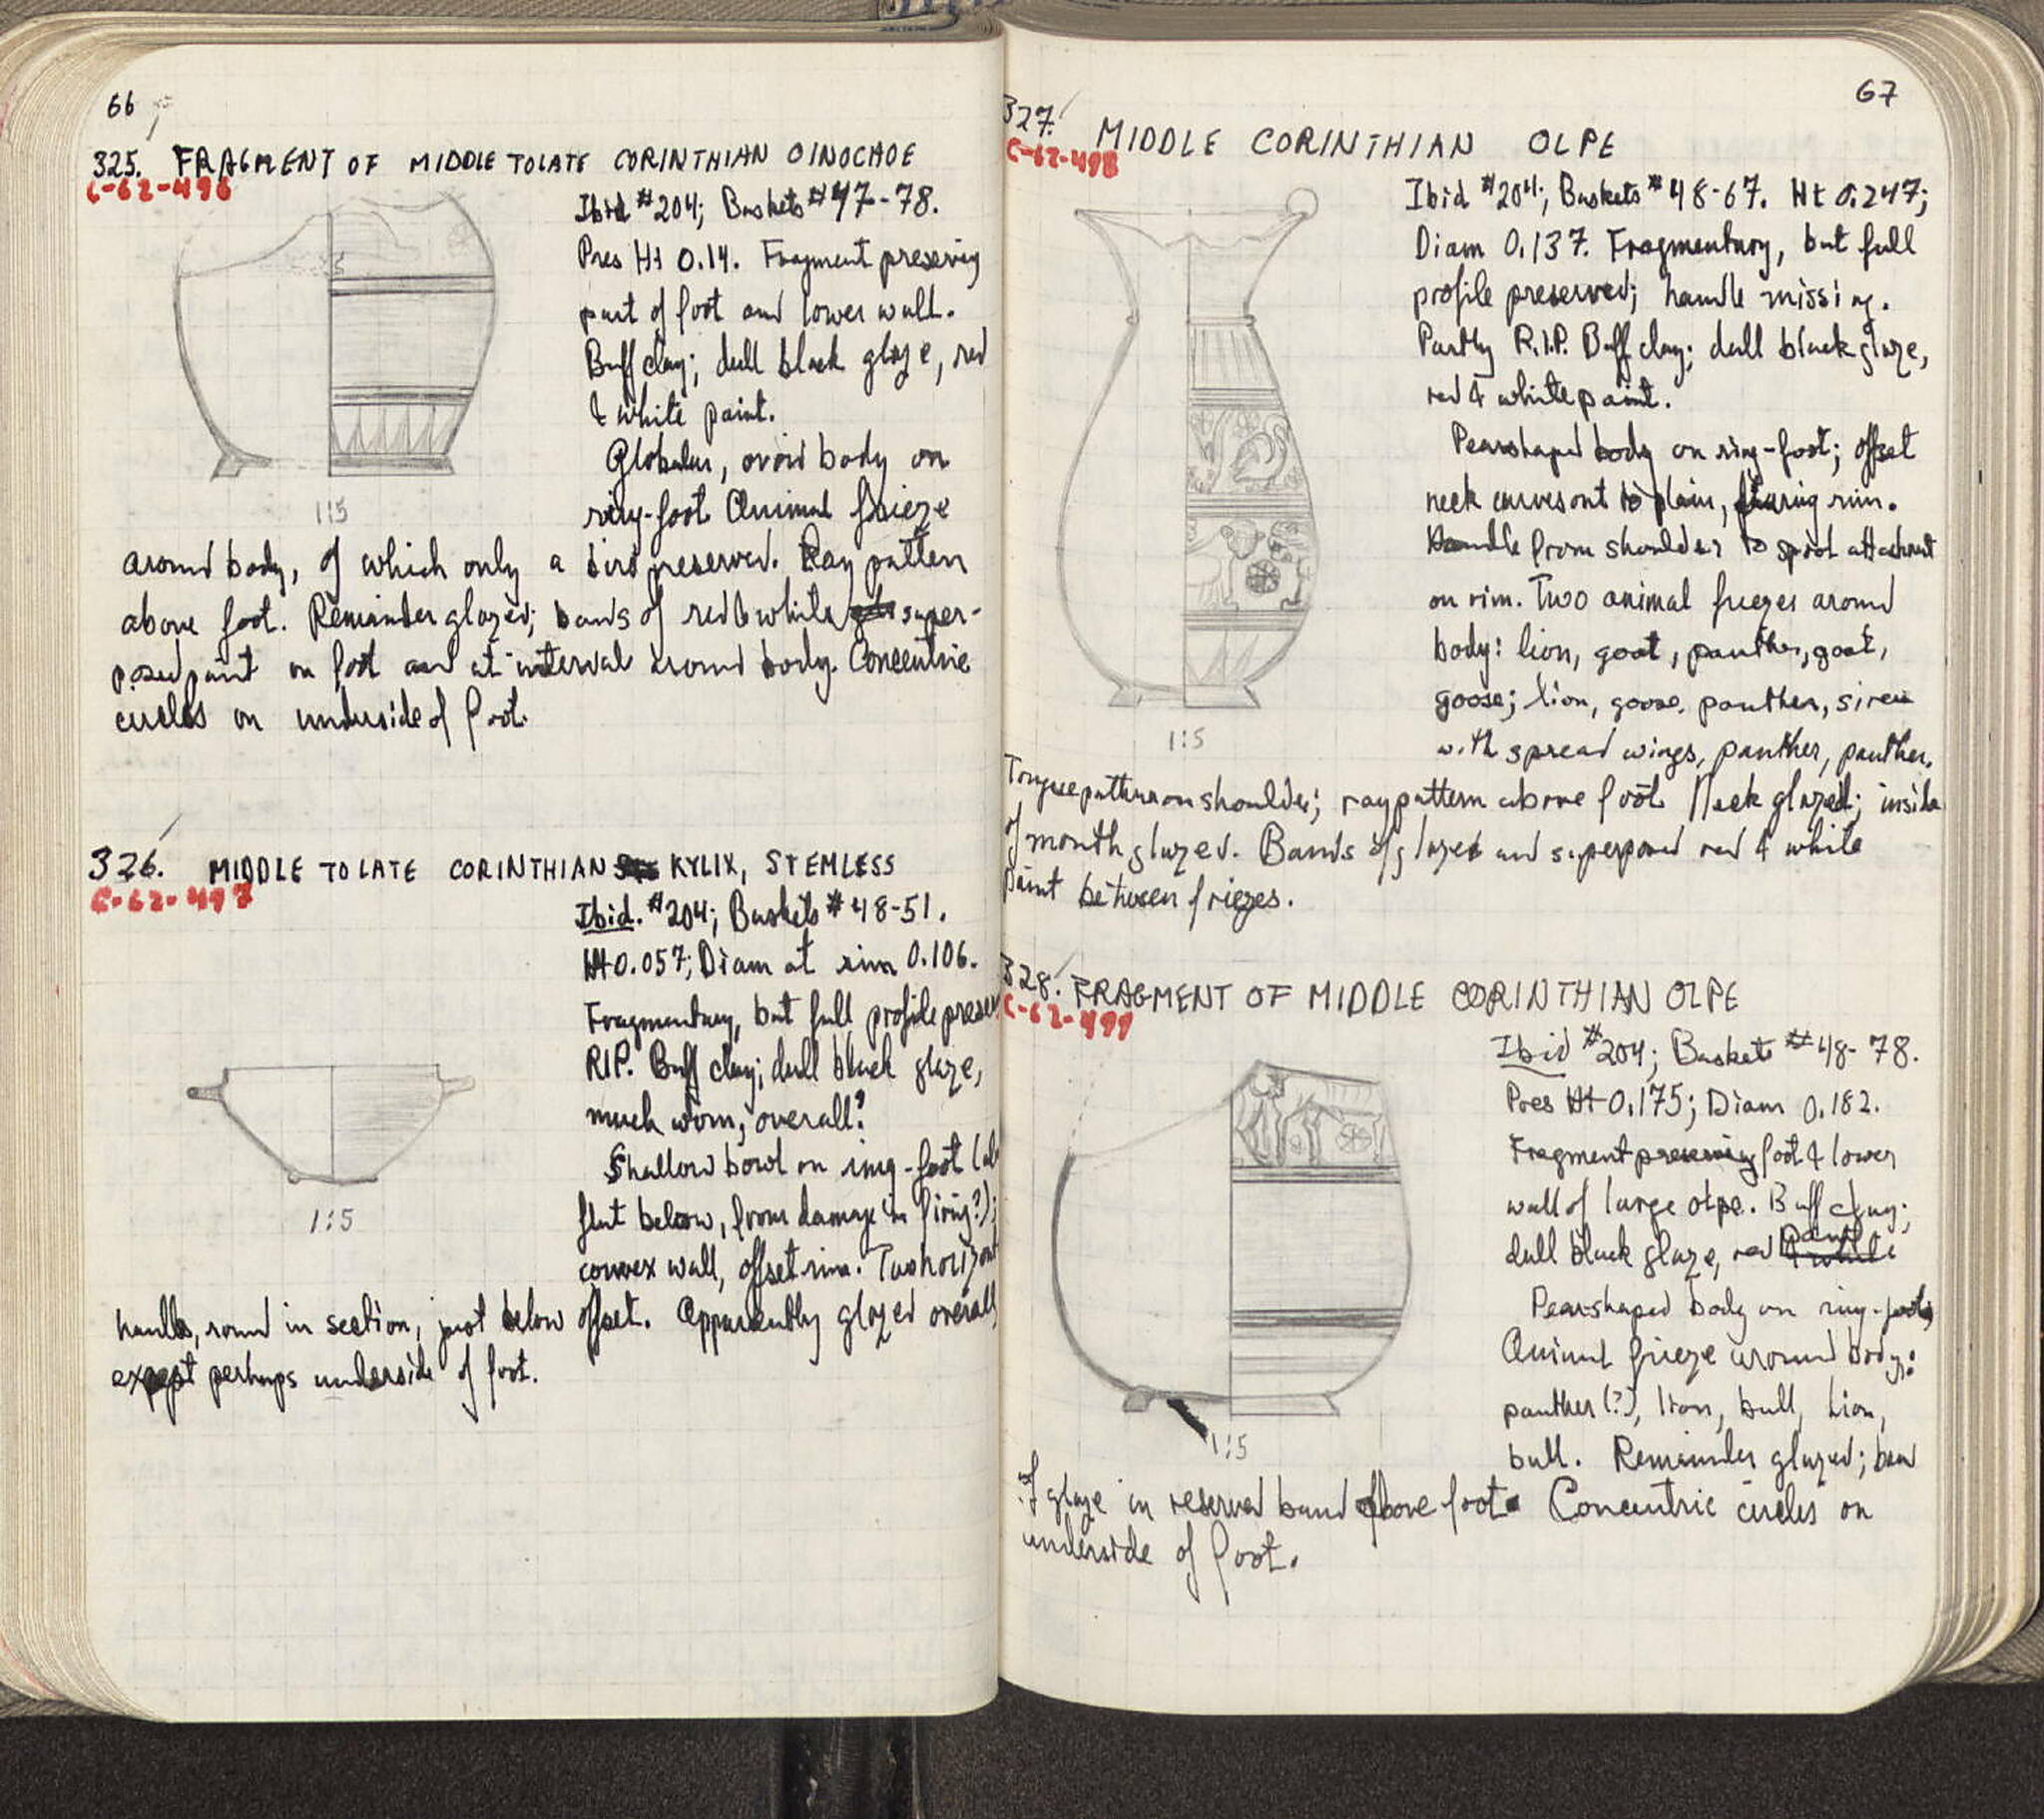 66
325. FRAGMENT OF MIDDLE TO LATE CORINTHIAN OINOCHOE
C-62-496
Ibid #204; Baskets #47-78.
Pres Ht 0.14. Fragment preserving
part of foot and lower wall.
Buff clay; dull black glaze, red
& white paint.
Globular, ovoid body on
ring-foot. Animal frieze
1:5
around body, of which only a bird preserved. Ray pattern
above foot. Remainder glazed; bands of red & white super-
posed paint on foot and at interval around body. Concentric
circles on underside of foot.
326. MIDDLE TO LATE CORINTHIAN KYLIX, STEMLESS
C-62-497
Ibid. #204; Baskets #48-51.
Ht 0.057; Diam at rim 0.106.
Fragmentary, but full profile preser
RIP. Buff clay; dull black glaze,
much worn, overall?
Shallow bowl on ring-foot
flat below, from damage in firing?);
convex wall, offset rim. Two horizont
1:5
handles, round in section, just below offset. Apparently glazed overall
except perhaps underside of foot.
67
327. MIDDLE CORINTHIAN OLPE
C-62-498
Ibid #204; Baskets #48-67. Ht 0.247;
Diam 0.137. Fragmentary, but full
profile preserved; handle missing.
Partly R.I.P. Buff clay; dull black glaze,
red & white paint.
Pearshaped body on ring-foot; offset
neck curves out to plain, flaring rim.
Handle from shoulder to spool attachment
on rim. Two animal friezes around
body: lion, goat, panther, goat,
goose; lion, goose, panther, siren
with spread wings, panther, panther.
1:5
Tongue pattern on shoulder; ray pattern above foot. Neck glazed; inside
of mouth glazed. Bands of glazed and superposed red & white
paint between friezes.
328. FRAGMENT OF MIDDLE CORINTHIAN OLPE
C-62-499
Ibid #204; Baskets #48-78.
Pres Ht 0.175; Diam 0.182.
Fragment preserving foot & lower
wall of large olpe. Buff clay;
dull black glaze, red paint & white
Pearshaped body on ring-foot;
Animal frieze around body:
panther (?), lion, bull, lion,
bull. Remainder glazed;
1:5
of glaze in reserved band above foot. Concentric circles on
underside of foot.